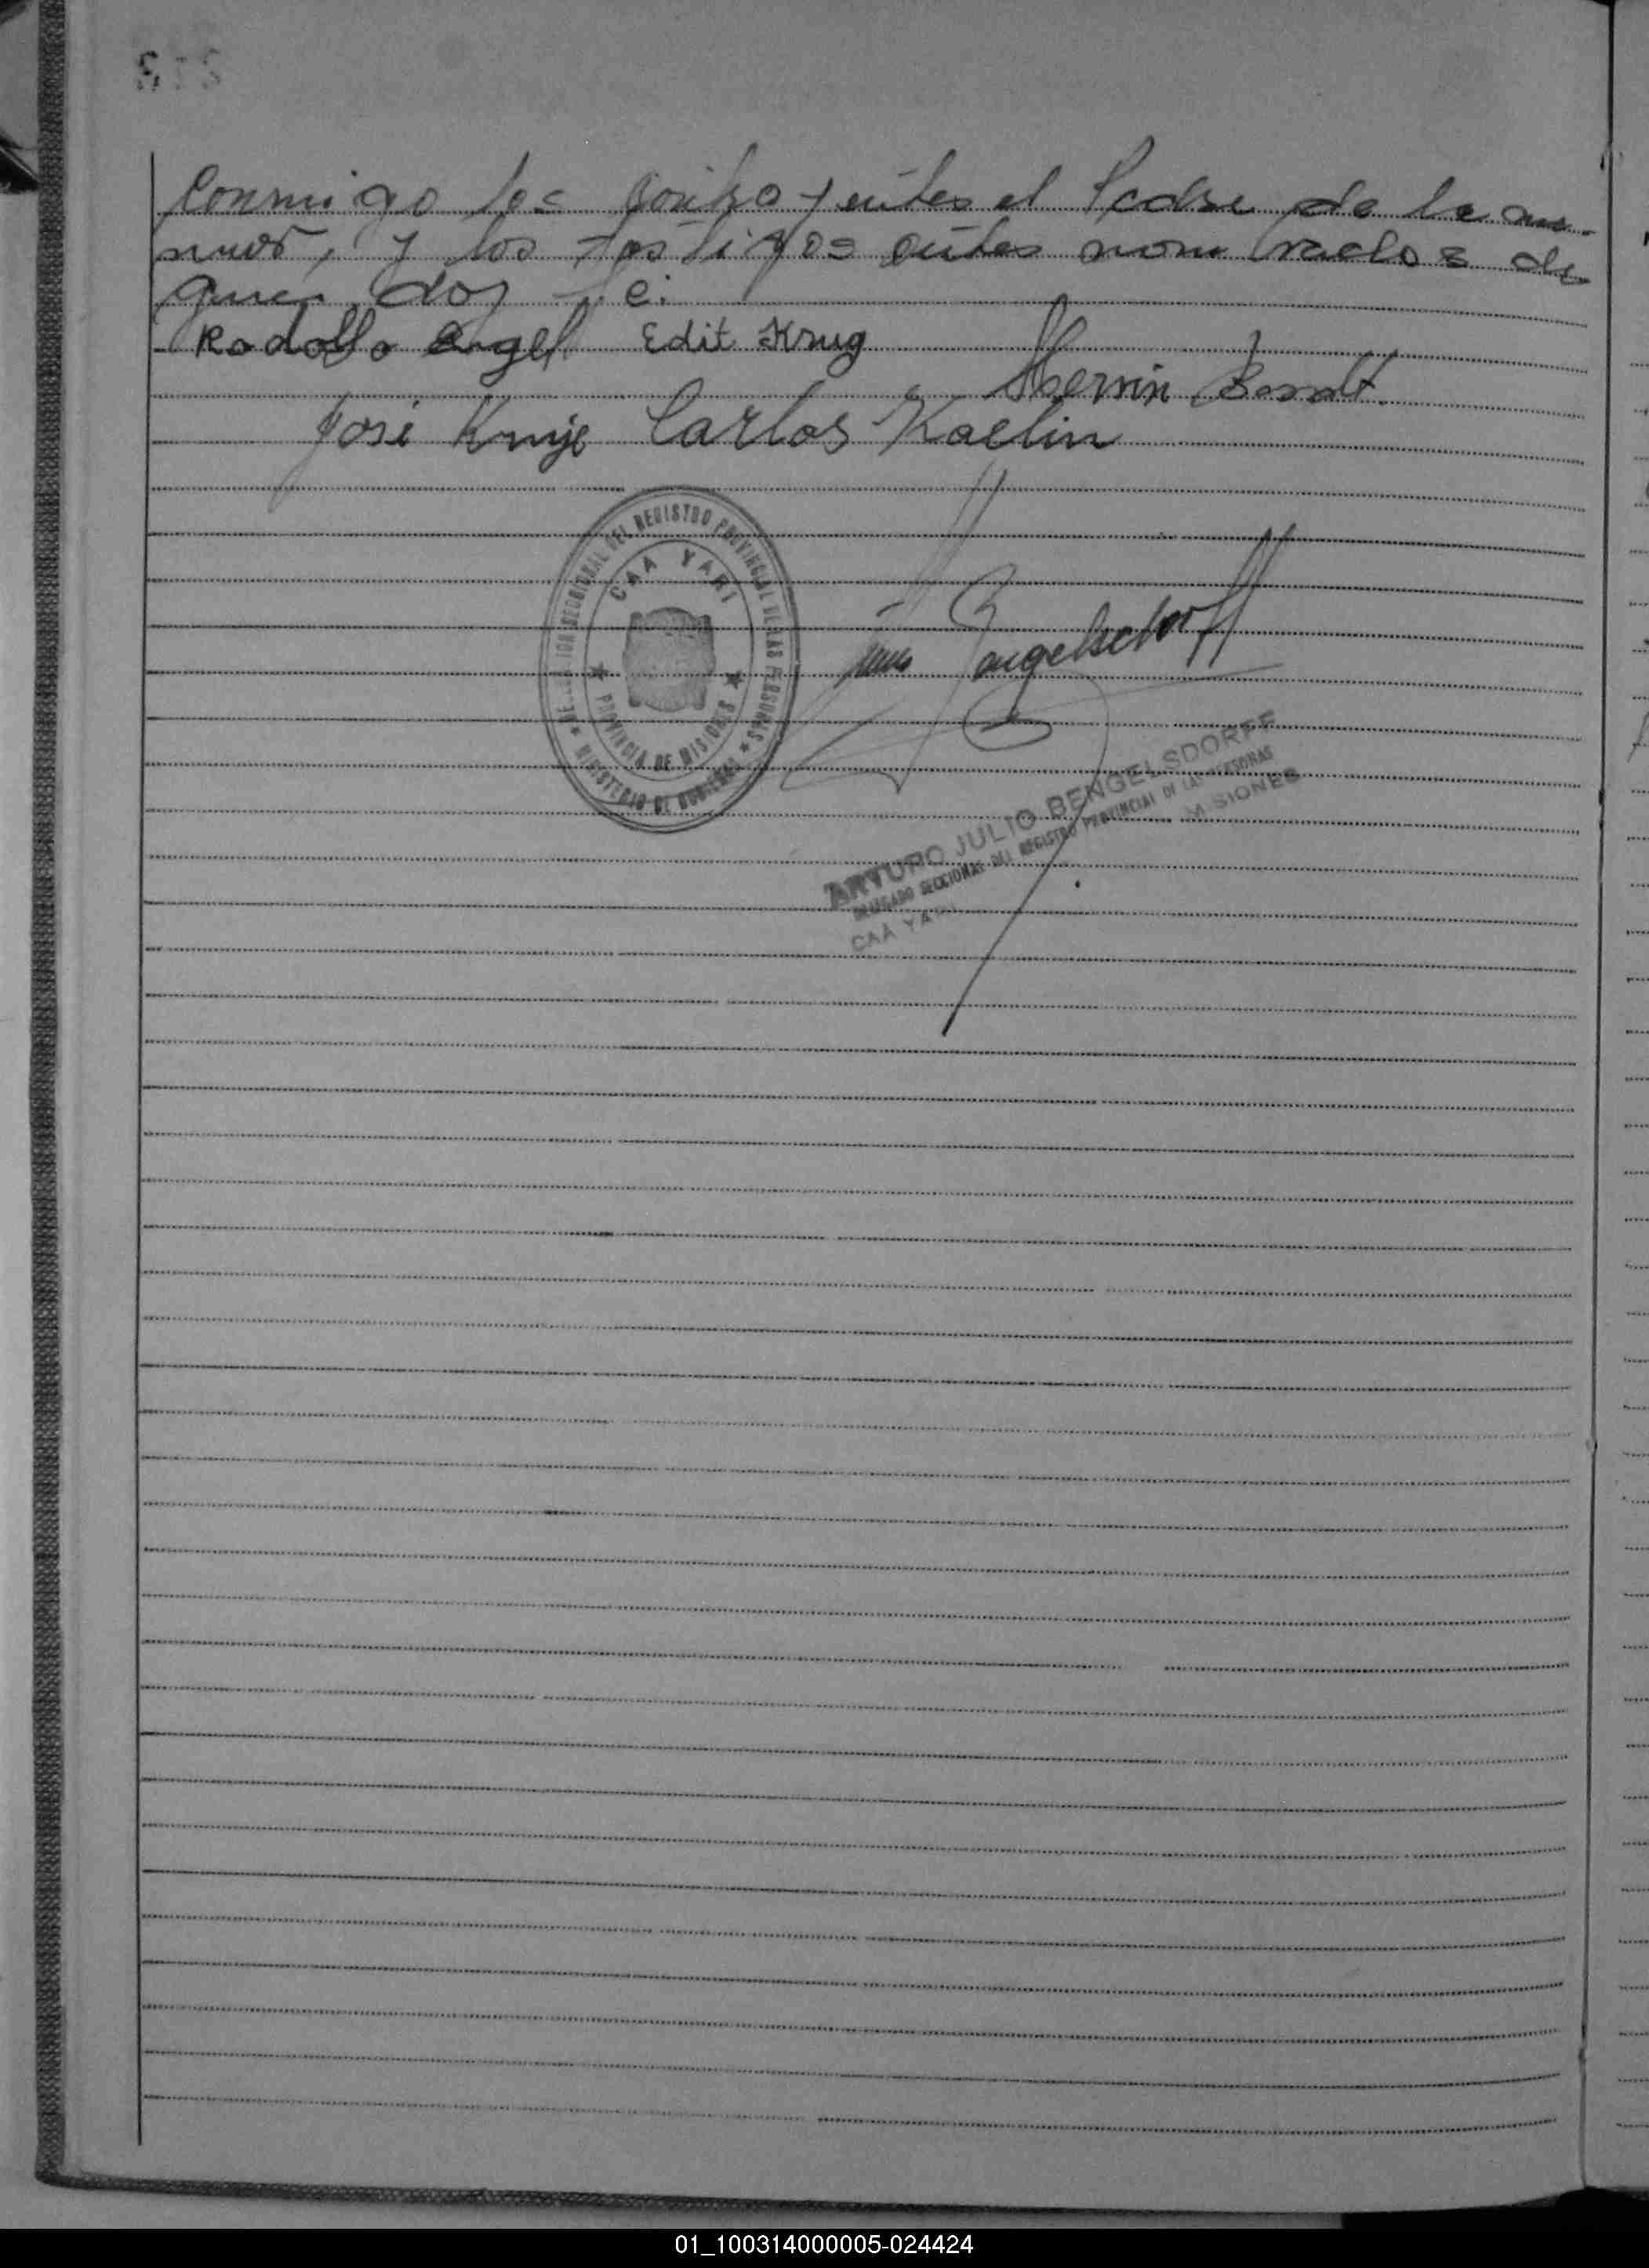 Conmigo los contrayentes el Padre de la me-
nuor, y los testigos antes nombrados de
que doy fe.
Rodolfo Engel Edit Krug
Herwin Bonolt.
José Krug Carlos Kaelin
DELEGACION SECCIONAL DEL REGISTRO PROVINCIAL DE LAS PERSONAS
CAA YARI
PROVINCIA DE MISIONES
MINISTERIO DE GOBIERNO
Bengelsdorff
ARTURO JULIO BENGELSDORFF
DELEGADO SECCIONAL DEL REGISTRO PROVINCIAL DE LAS PERSONAS
CAA YARI MISIONES
01_100314000005-024424